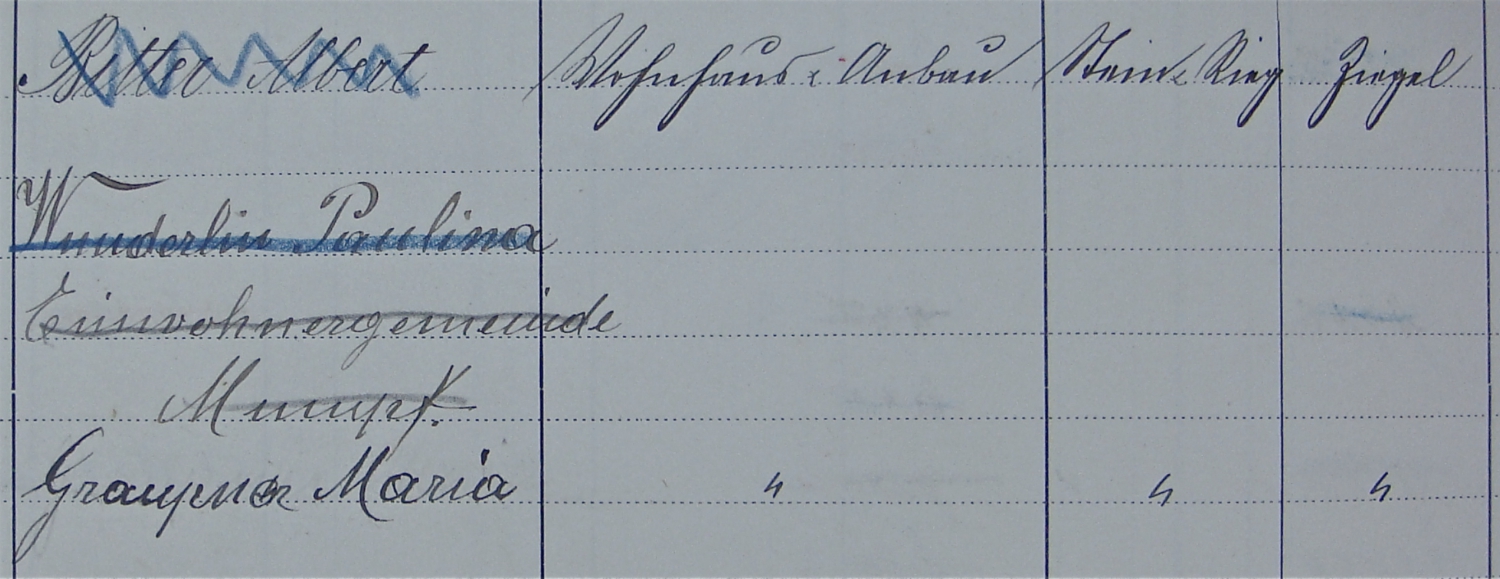 Ritter Albert Wohnhaus & Anbau Stein & Rieg Ziegel
Wunderlin Paulina
Einwohnergemeinde
Mumpf.
Graupner Maria " " "